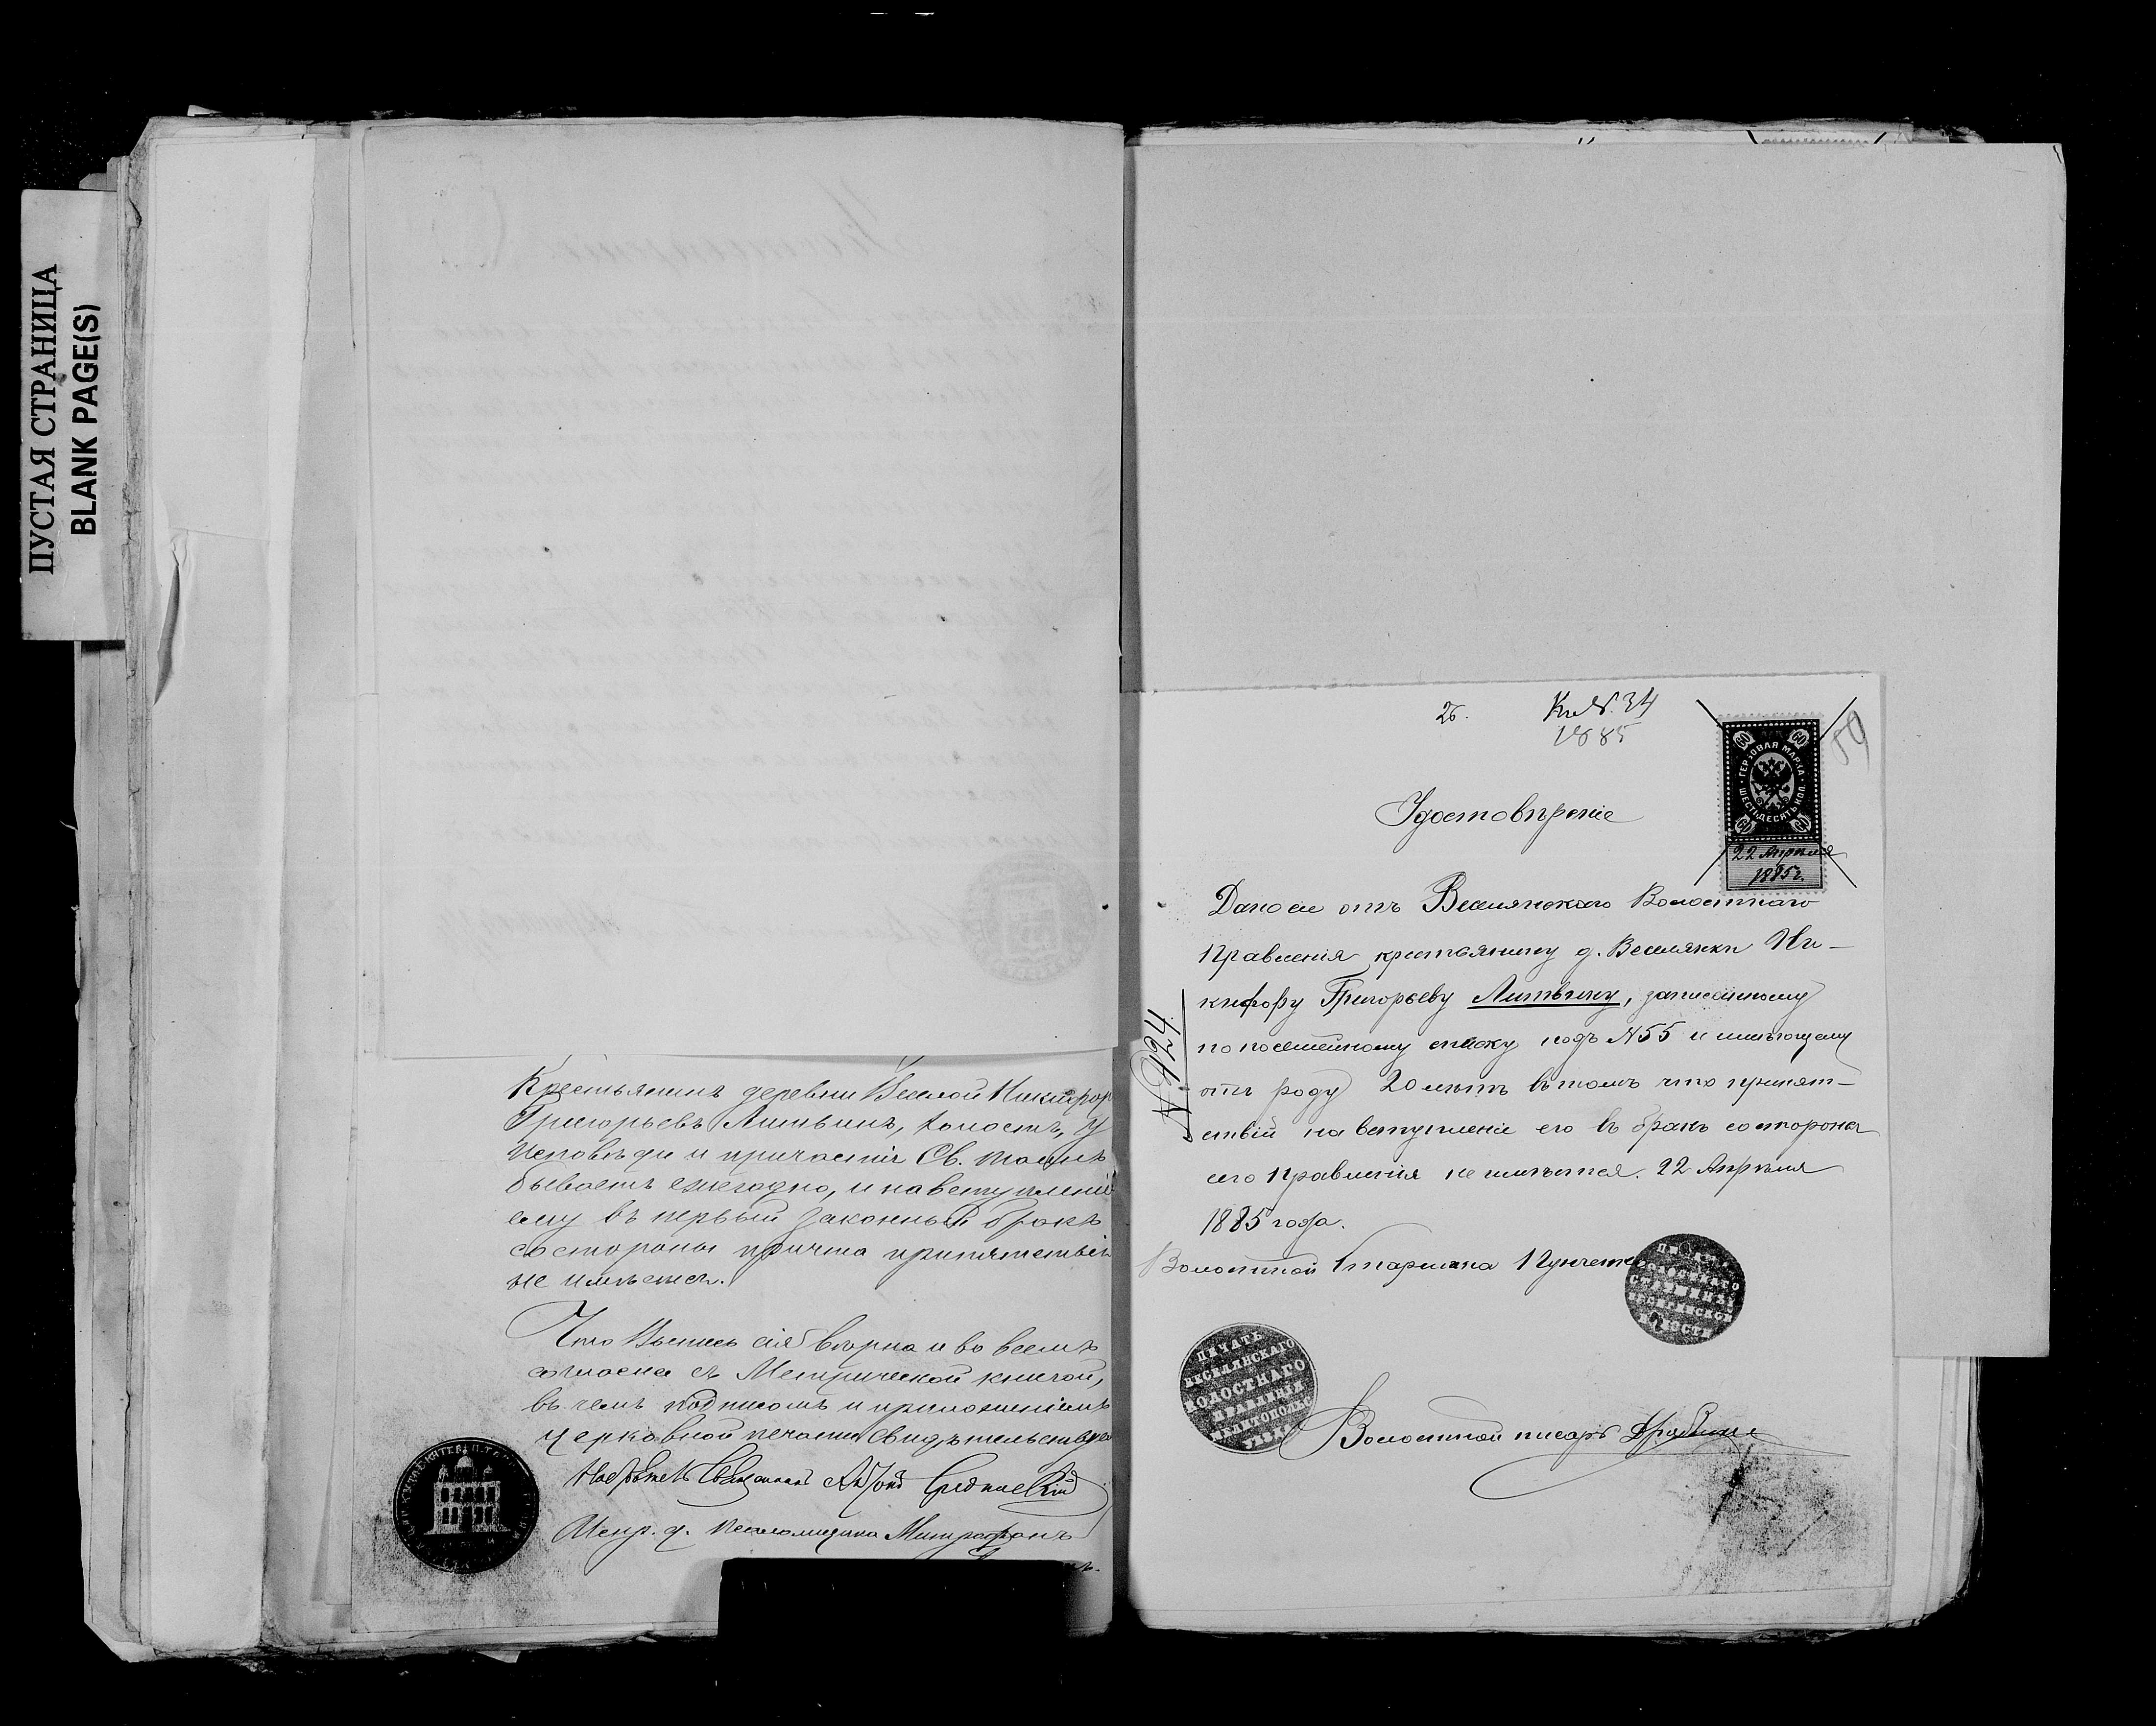 ПУСТАЯ СТРАНИЦА
BLANK PAGE(S)
Крестьянинъ деревни Веселой Никифоръ
Григорьевъ Литвинъ, холостъ, у
Исповѣди и причастія Св. Таинъ
бываетъ ежегодно, и на вступленіе
ему въ первый законный бракъ
со стороны причта припятствій
не имѣется.
Что Выпись сія вѣрна и во всемъ
согласна съ Метрической книгой,
въ чемъ подписомъ и приложеніемъ
церковной печати свидѣтельствуемъ
Священникъ
Испр. д. псаломщика Митрофанъ
26.
Къ №. 34
1885
59
ГЕРБОВАЯ МАРКА
ШЕСТЬДЕСЯТЪ КОП.
60 60 60 60
22 Апрѣля
1885 г.
Удостовѣреніе
Дано сіе отъ Веселянскаго Волостнаго
Правленія крестьянину д. Веселянки Ни-
кифору Григорьеву Литвину, записанному
по посемейному списку подъ №55 и имѣющему
отъ роду 20 лѣтъ въ томъ что припят-
ствій на вступленіе его въ бракъ со стороны
сего Правленія не имѣется. 22 Апрѣля
1885 года.
№ 424
Волостной Старшина
ПЕЧАТЬ
ВОЛОСТНАГО
СТАРШИНЫ
ВЕСЕЛЯНСКОЙ
ВОЛОСТИ
ПЕЧАТЬ
ВЕСЕЛЯНСКАГО
ВОЛОСТНАГО
ПРАВЛЕНІЯ
МЕЛИТОПОЛЬС
УѢЗДА
Волостной писарь